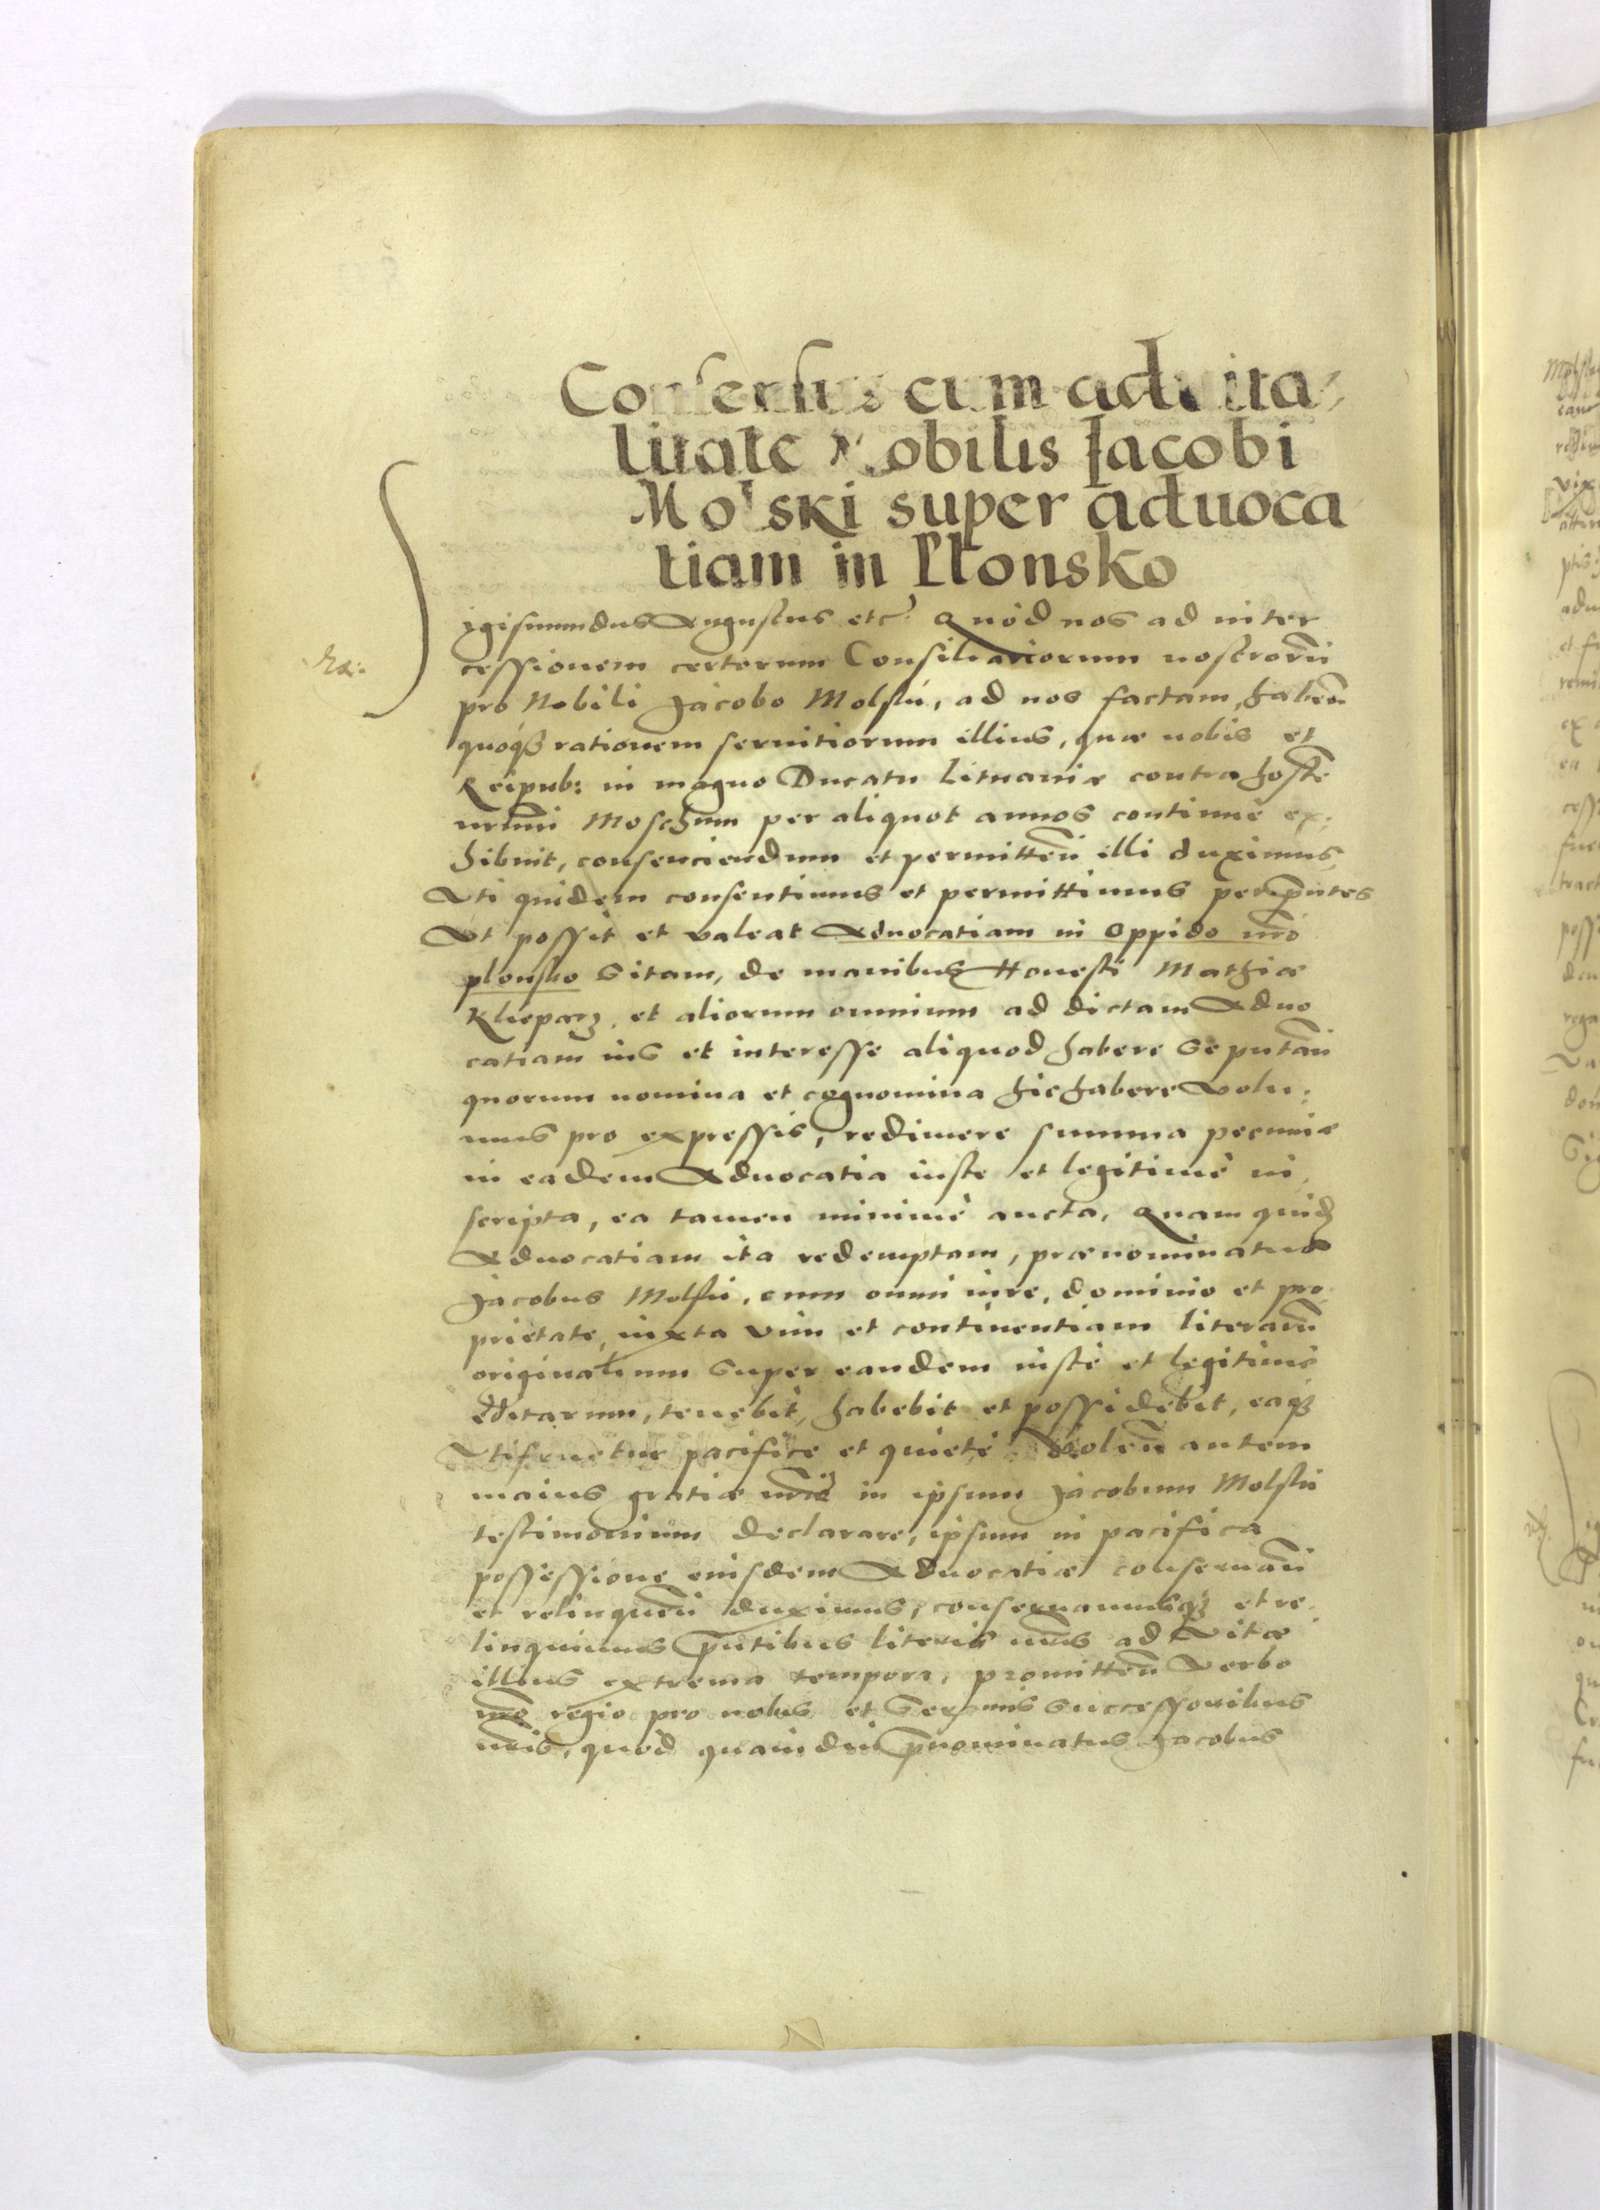 Consensus cum aduita,
litate Nobilis Jacobi
Molski super aduoca
tiam in Plonsko
Sigismundus Augustus etc̃ Quod nos ad inter
cessionem certorum Consiliariorum nostrorũ
pro Nobili Jacobo Molski, ad nos factam, habeñ
quoqȝ rationem seruitiorum illius, quæ nobis et
Reipub: in magno Ducatu Lituaniæ contra hostẽ
nr̃um Moschum per aliquot annos continue ex,
hibuit, consenciendum et permitteñ illi duximus,
Uti quidem consentimus et permittimus per p̃ntes
Ut possit et valeat Aduocatiam in Oppido nr̃o
plonsko Sitam, de manibus Honesti Mathiæ
Klieparz, et aliorum omnium ad dictam Aduo
catiam ius et interesse aliquod habere Se putañ
quorum nomina et cognomina hic habere Volu:
mus pro expressis, redimere summa pecuniæ
in eadem Aduocatia iuste et legitimè in,
scripta, ea tamen minimè aucta, Quam quid
Aduocatiam ita redemptam, prænominatus
Jacobus Molski, cum omni iure, dominio et pro
prietate, iuxta vim et continentiam literarũ
originalium Super eandem iustè et legitimè
editarum, tenebit, habebit et possidebit, eaqȝ
Utifruetur pacifice et quietè. Volẽn autem
maius gratiæ nr̃æ in ipsum Jacobum Molski
testimonium declarare, ipsum in pacifica
possessione eiusdem Aduocatiæ conseruañ
et relinqueñ duximus, conseruamusqȝ et re,
linquimus p̃ntibus literis nr̃is ad Vitæ
illius extrema tempora, promitteñ Verbo
nr̃o regio pro nobis et Serẽmis Successoribus
nr̃is, quod quamdiu p̃nominatus Jacobus